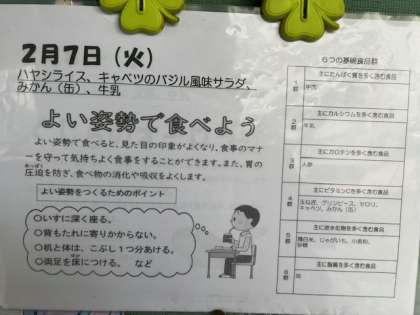 2月7日（火）
ハヤシライス、キャベツのバジル風味サラダ、
みかん（缶）、牛乳
よい姿勢で食べよう
よい姿勢で食べると、見た目の印象がよくなり、食事のマナ
ーを守って気持ちよく食事をすることができます。また、胃の
圧迫を防ぎ、食べ物の消化や吸収をよくします。
よい姿勢をつくるためのポイント
○いすに深く座る。
○背もたれに寄りかからない。
○机と体は、こぶし１つ分あける。
○両足を床につける。 など
６つの基礎食品群
1群
主にたんぱく質を多く含む食品
2群
主にカルシウムを多く含む食品
牛乳
3群
主にカロテンを多く含む食品
人参
4群
主にビタミンCを多く含む食品
玉ねぎ、グリンピース、セロリ、
キャベツ、みかん（缶）
5群
主に炭水化物を多く含む食品
精白米、じゃがいも、小麦粉、
砂糖
6群
主に脂質を多く含む食品
油